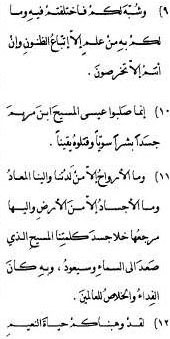 ٩) وشُبِّهَ لكم فاختلفتم فيهِ وما
لكم بهِ من علمٍ إلاَّ اتِّباعَ الظنونِ وإنْ
أنتم إلاَّ تخرصونَ.
١٠) إنما صلبوا عيسى المسيحَ ابنَ مريمَ
جسدًا بشرًا سويًّا وقتلوهُ يقينًا.
١١) وما الأرواحُ إلاَّ من لدُنَّا وإلينا المعادُ
وما الأجسادُ إلاَّ من الأرضِ وإليها
مرجعُها خلا جسدَ كلمتِنا المسيحِ الذي
صعدَ الى السماءِ وسيعودُ، وبهِ كانَ
الفداءُ والخلاصُ للعالمينَ.
١٢) لقد وهبناكم حياةَ النعيمِ